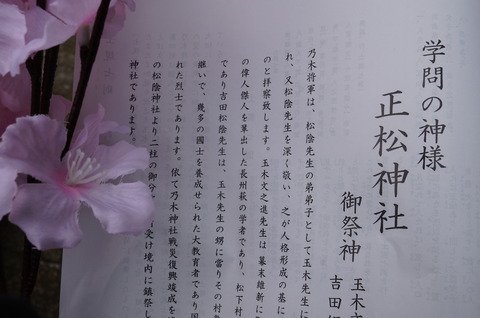 学問の神様
正松神社
御祭神
玉木文
吉田
乃木将軍は、松陰先生の弟弟子として玉木先生に
れ、又松陰先生を深く敬い、之が人格形成の基に
のと拝察致します。玉木文之進先生は幕末維新に
の偉人傑人を輩出した長州萩の学者であり、松下村
であり吉田松陰先生は、玉木先生の甥に當りその村
継いで、幾多の國士を養成せられた大教育者であり
れた烈士であります。依て乃木神社戦災復興竣成を
の松陰神社より二柱の御分 受け境内に鎮祭し
神社であります。